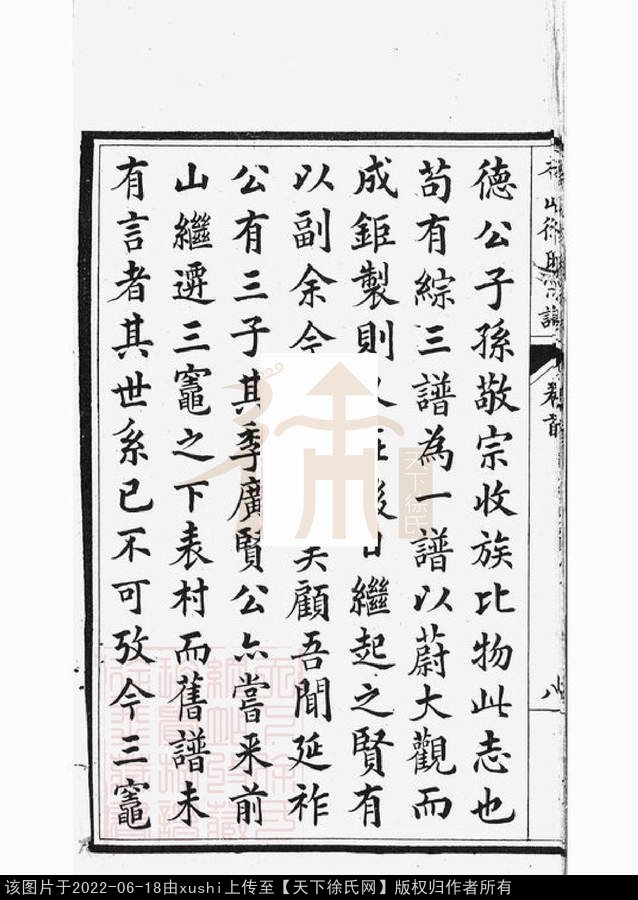 德公子孫敬宗收族比物此志也
苟有綜三譜為一譜以蔚大觀而
成鉅製則後日繼起之賢有
以副余今矣顧吾聞延祚
公有三子其季廣賢公亦嘗來前
山繼遷三竈之下表村而舊譜未
有言者其世系已不可攷今三竈
卷首
八
徐
天下徐氏
该图片于2022-06-18由xushi上传至【天下徐氏网】版权归作者所有